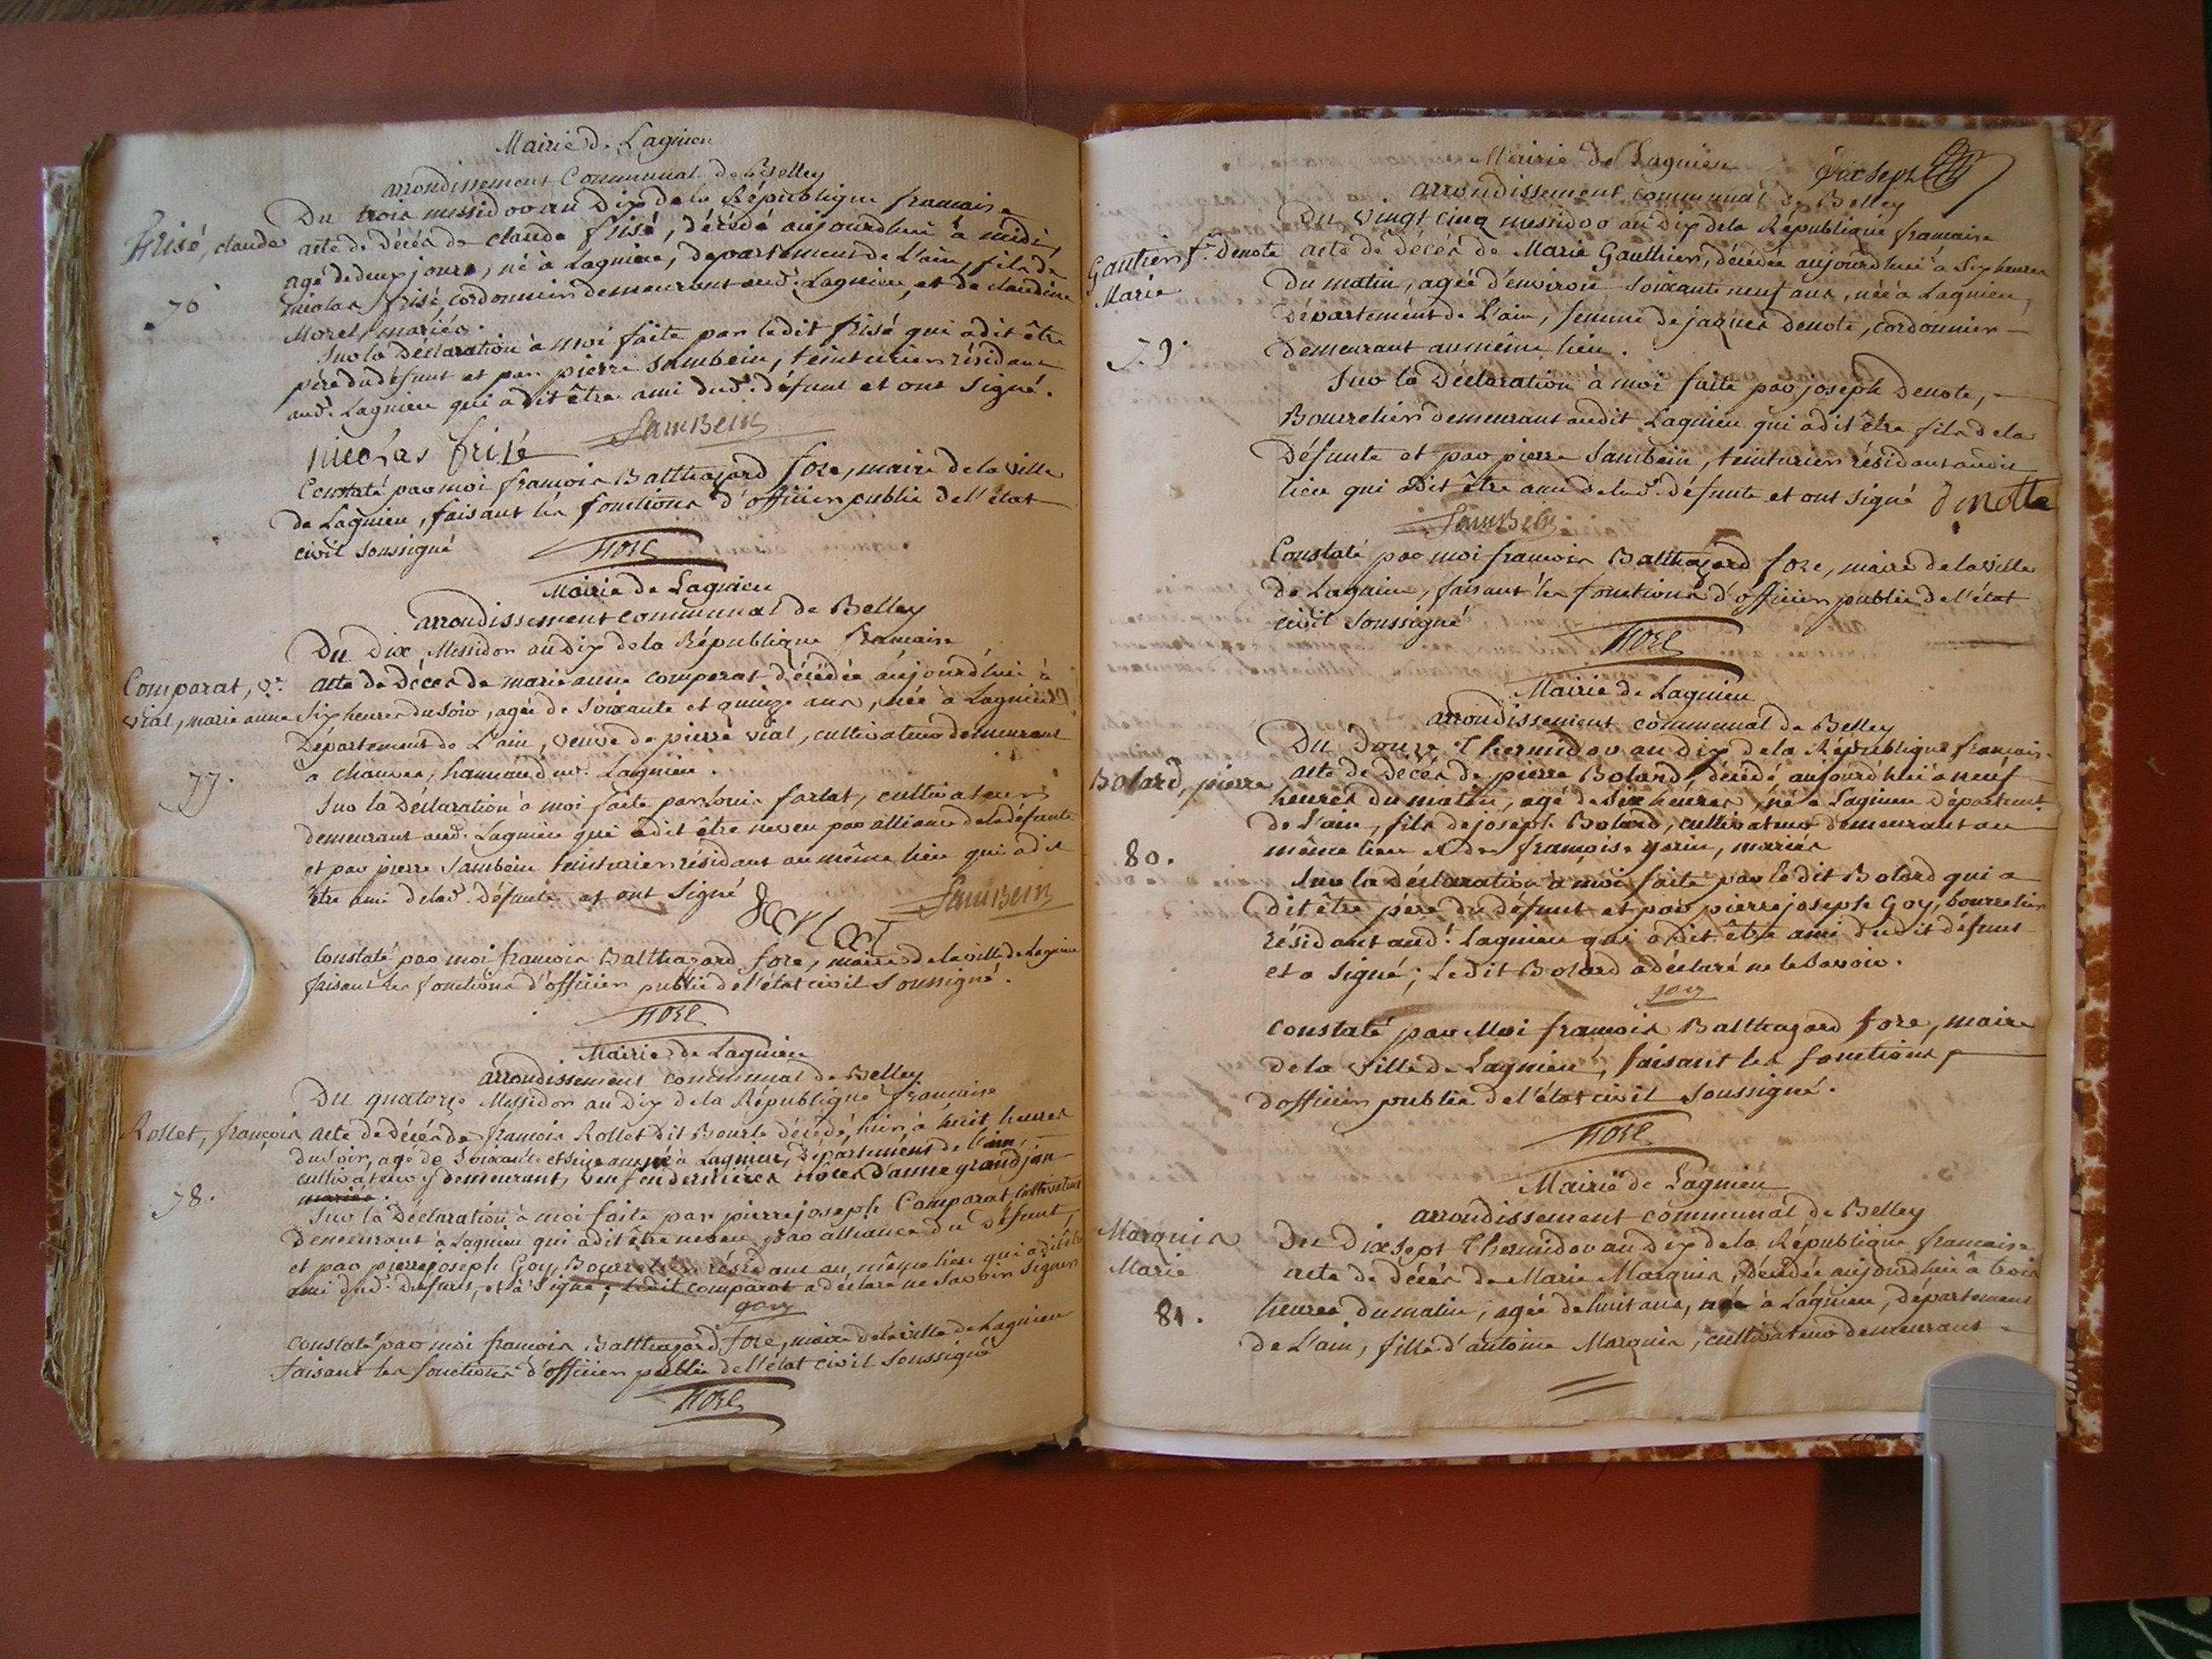 Mairie de Lagnieu
arrondissement Communal de Belley
Du trois messidor an Dix de la République francaise
frisé, claude
acte de Décès de claude frisé, décédé aujourdhui à midi,
agé de deux jours, né à Lagnieu, departement de L'ain, fils de
76
nicolas frisé, cordonnier demeurant aud. Lagnieu, et de claudine
Morel, mariés.
Sur la Déclaration à moi faite par ledit frisé qui a dit être
père du défunt et par pierre sambein, teinturier résidant
aud. Lagnieu qui a dit être ami dud. défunt et ont signé.
SamBein
nicolas frisé
Constaté par moi francois Balthazard fore, maire de la ville
de Lagnieu, faisant les fonctions d'officier public de l'état
civil soussigné
fore
Mairie de Lagnieu
arrondissement communal de Belley
Du Dix Messidor an Dix de la République francaise
Comparat, ve.
vial, marie anne
acte de Décès de marie anne comparat décédée aujourd'hui à
six heures du soir, agée de soixante et quinze ans, née à Lagnieu
Département de L'ain, veuve de pierre vial, cultivateur demeurant
77.
a chanves, hameau dud. Lagnieu.
Sur la Déclaration à moi faite par louis farlat, cultivateur
demeurant aud. Lagnieu qui a dit être neveu par alliance de la défunte
et par pierre Sambein teinturier résidant au même lieu qui a dit
être ami de lad. Défunte et ont signé
SamBein
Constaté par moi francois Balthazard fore, maire de la ville de Lagnieu
faisant les fonctions d'officier public de l'état civil soussigné.
fore
Mairie de Lagnieu
arrondissement communal de Belley
Du quatorze Messidor an Dix de la République francaise
Rollet, françois
acte de décès de francois Rollet dit Bourle décédé, hier à huit heures
du soir, agé de soixante et seize ans né à Lagnieu, Département de l'ain,
cultivateur y demeurant, veuf en dernières nôces d'anne grandjan
78.
mariés.
Sur la Déclaration à moi faite par pierre joseph Comparat, cultivateur
demeurant à Lagnieu qui a dit être neveu par alliance du Défunt,
et par pierre joseph Goy, Bourrelier résidant au même lieu qui a dit être
ami dud. Défunt, et a signé; ledit comparat a déclaré ne savoir signer
goy
constaté par moi francois Balthazard fore, maire de la ville de Lagnieu
faisant les fonctions d'officier public de l'état civil soussigné
fore
Dix Sept
Mairie de Lagnieu
arrondissement communal de Belley
Du vingt cinq messidor an Dix de la République francaise
Gautier fe. Denote
Marie
acte de Décès de Marie Gauthier, décédée aujourdhui à six heures
du matin, agée d'environ soixante neuf ans, née à Lagnieu,
Département de L'ain, femme de jaques Denote, cordonnier
79.
demeurant au même lieu.
Sur la Déclaration à moi faite par joseph Denote,
Bourrelier demeurant audit Lagnieu qui a dit être fils de la
Défunte et par pierre Sambein, teinturier résidant audit
lieu qui a dit être ami de lad. défunte et ont signé
Denotte
SamBein
Constaté par moi francois Balthazard fore, maire de la ville
de Lagnieu, faisant les fonctions d'officier public de l'état
civil soussigné
fore
Mairie de Lagnieu
arrondissement communal de Belley
Du Douze Thermidor an dix de la République francaise
Bolard, pierre
acte de décès de pierre Bolard, décédé aujourd'hui à neuf
heures du matin, agé de six heures, né à Lagnieu Département
de L'ain, fils de joseph Bolard, cultivateur demeurant au
80.
même lieu et de françoise yarin, mariés
Sur la Déclaration à moi faite par ledit Bolard qui a
dit être père du défunt et par pierre joseph Goy, bourrelier
résidant aud. Lagnieu qui a dit être ami dudit défunt
et a signé; Ledit Bolard a déclaré ne le savoir.
goy
Constaté par Moi francois Balthazard fore, maire
de la ville de Lagnieu, faisant les fonctions
d'officier public de l'état civil soussigné.
fore
Mairie de Lagnieu
arrondissement communal de Belley
Marquis
Marie
Du Dix sept Thermidor an Dix de la République francaise
acte de décès de Marie Marquis, décédée aujourdhui à trois
81.
heures du matin, agée de huit ans, née à Lagnieu, département
de L'ain, fille d'antoine Marquis, cultivateur demeurant